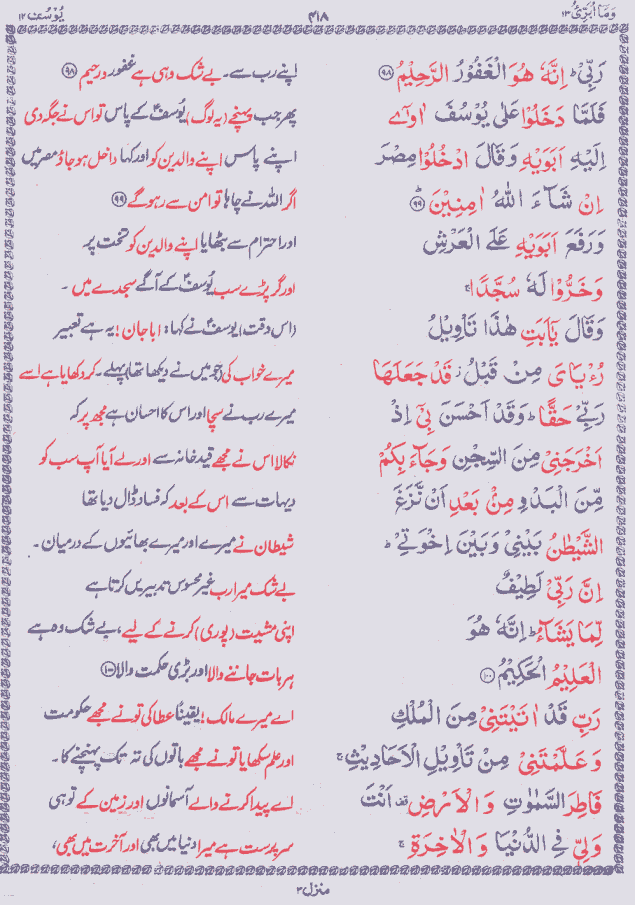 وَمَآ اُبَرِّئُ ۱۳ ۴۱۸ یُوْسُف ۱۲
رَبِّیْ ؕ اِنَّهٗ هُوَ الْغَفُوْرُ الرَّحِیْمُ ﴿۹۸﴾ اپنے رب سے۔ بے شک وہی ہے غفور و رحیم ﴿۹۸﴾
فَلَمَّا دَخَلُوْا عَلٰی یُوْسُفَ اٰوٰۤی پھر جب پہنچے (یہ لوگ) یُوسُفؑ کے پاس تو اس نے جگہ دی
اِلَیْهِ اَبَوَیْهِ وَقَالَ ادْخُلُوْا مِصْرَ اپنے پاس اپنے والدین کو اور کہا داخل ہو جاؤ مصر میں
اِنْ شَآءَ اللّٰهُ اٰمِنِیْنَ ؕ﴿۹۹﴾ اگر اللہ نے چاہا تو امن سے رہو گے ﴿۹۹﴾
وَرَفَعَ اَبَوَیْهِ عَلَی الْعَرْشِ اور احترام سے بٹھایا اپنے والدین کو تخت پر
وَخَرُّوْا لَهٗ سُجَّدًا ۚ اور گر پڑے سب یُوسُفؑ کے آگے سجدے میں ۔
وَقَالَ یٰۤاَبَتِ هٰذَا تَاْوِیْلُ (اس وقت) یوسفؑ نے کہا: ابا جان! یہ ہے تعبیر
رُءْیَایَ مِنْ قَبْلُ ؗ قَدْ جَعَلَهَا میرے خواب کی (جو میں نے دیکھا تھا) پہلے۔ کر دکھایا ہے اسے
رَبِّیْ حَقًّا ؕ وَقَدْ اَحْسَنَ بِیْۤ اِذْ میرے رب نے سچا اور اس کا احسان ہے مجھ پر کہ
اَخْرَجَنِیْ مِنَ السِّجْنِ وَجَآءَ بِكُمْ نکالا اس نے مجھے قید خانہ سے اور لے آیا آپ سب کو
مِّنَ الْبَدْوِ مِنْۢ بَعْدِ اَنْ نَّزَغَ دیہات سے اس کے بعد کہ فساد ڈال دیا تھا
الشَّیْطٰنُ بَیْنِیْ وَبَیْنَ اِخْوَتِیْ ؕ شیطان نے میرے اور میرے بھائیوں کے درمیان۔
اِنَّ رَبِّیْ لَطِیْفٌ بے شک میرا رب غیر محسوس تدبیریں کرتا ہے
لِّمَا یَشَآءُ ؕ اِنَّهٗ هُوَ اپنی مشیت (پوری) کرنے کے لیے، بے شک وہ ہے
الْعَلِیْمُ الْحَكِیْمُ ﴿۱۰۰﴾ ہر بات جاننے والا اور بڑی حکمت والا ﴿۱۰۰﴾
رَبِّ قَدْ اٰتَیْتَنِیْ مِنَ الْمُلْكِ اے میرے مالک! یقینًا عطا کی تو نے مجھے حکومت
وَعَلَّمْتَنِیْ مِنْ تَاْوِیْلِ الْاَحَادِیْثِ ۚ اور علم سکھایا تو نے مجھے باتوں کی تہ تک پہنچنے کا۔
فَاطِرَ السَّمٰوٰتِ وَالْاَرْضِ ۫ اَنْتَ اے پیدا کرنے والے آسمانوں اور زمین کے تو ہی
وَلِیّٖ فِی الدُّنْیَا وَالْاٰخِرَةِ ۚ سرپرست ہے میرا دنیا میں بھی اور آخرت میں بھی،
منزل ۳